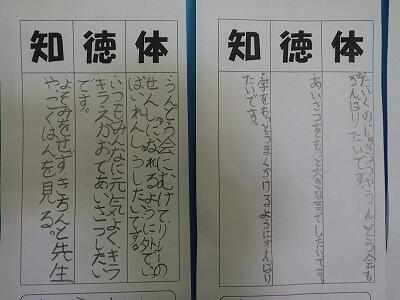 体
たいくのじゅぎょうやうんどう会も
がんばりたいです。
徳
あいさつをもっと大きな声でしたいです。
知
字をもっとうまくかけるようにがんばり
たいです。
体
うんどう会にむけてリレーの
せんしゅになれるように外でいっ
ぱいれんしゅうしたいです。
徳
いつもみんなに元気よく、キラ
キラえがおであいさつしたい
です。
知
よそみをせず、きちんと先生
やこくばんを見る。